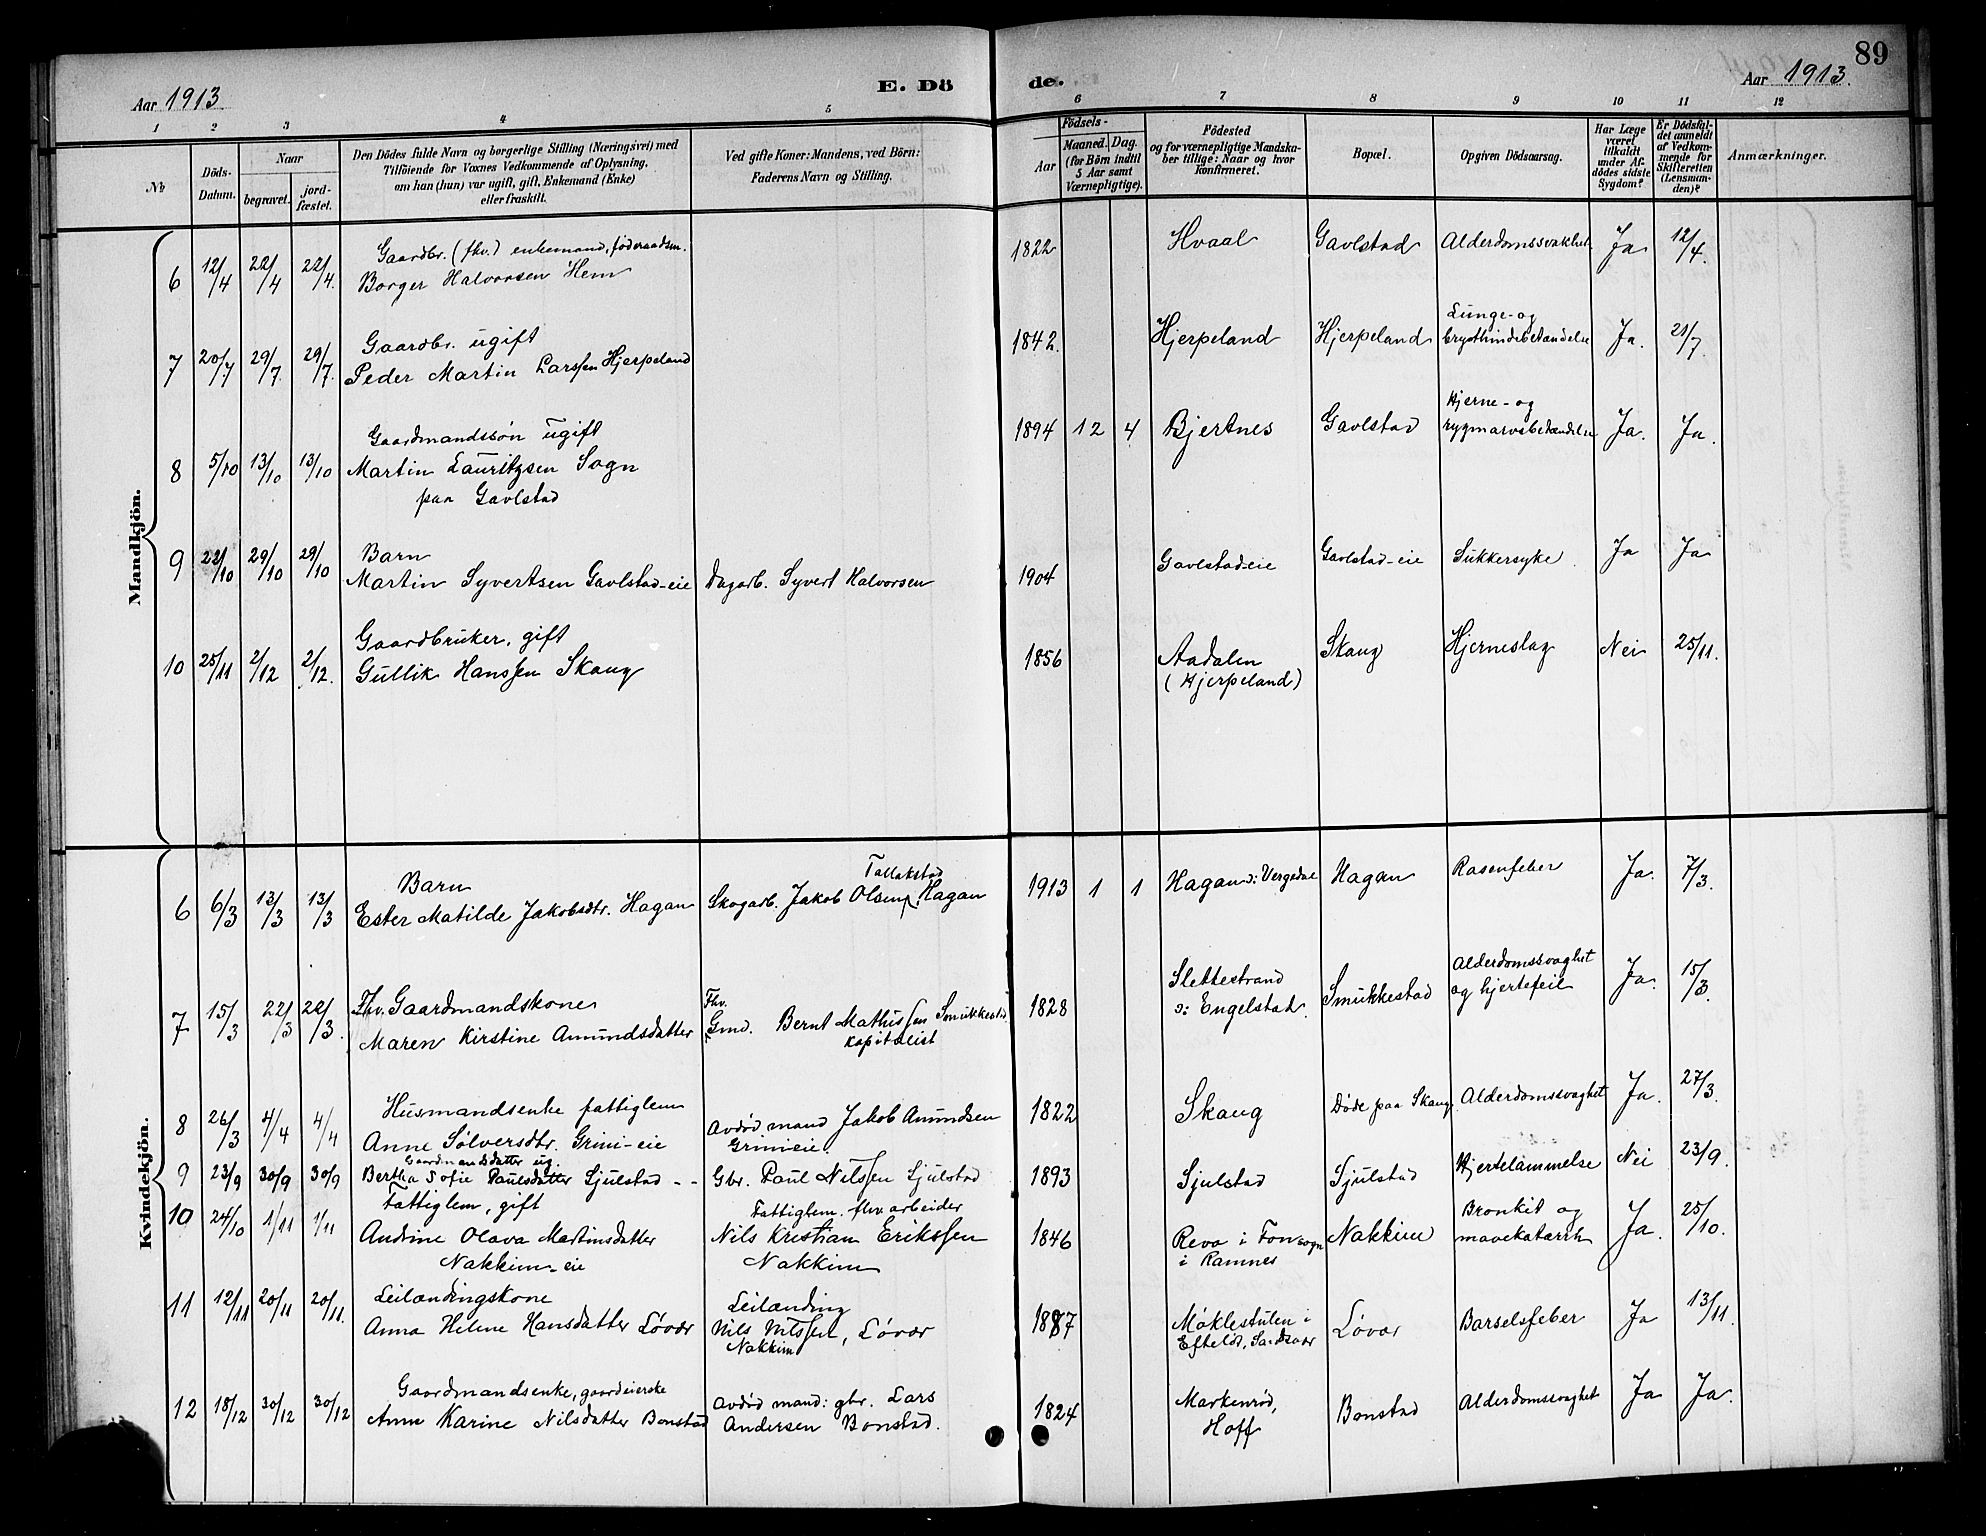 89
Aar 1913
E. Dö
de.
Aar 1913.
1 2 3 4 5 6 7 8 9 10 11 12
No
Döds-Datum.
Naar
begravet.
jord-fæstet.
Den Dödes fulde Navn og borgerlige Stilling (Næringsvei) med
Tilföiende for Voxnes Vedkommende af Oplysning,
om han (hun) var ugift, gift, Enkemand (Enke)
eller fraskilt.
Ved gifte Koner: Mandens, ved Börn:
Faderens Navn og Stilling.
Födsels-
Aar
Maaned. Dag.
(for Börn indtil
5 Aar samt
Værnepligtige).
Födested
og for værnepligtige Mandska-
ber tillige: Naar og hvor
konfirmeret.
Bopæl.
Opgiven Dödsaarsag.
Har Læge
været
tilkaldt
under Af-
dödes sidste
Sygdom?
Er Dödsfal-
det anmeldt
af Vedkom-
mende for
Skifteretten
(Lensman-
den)?
Anmærkninger.
Mandkjön.
6 12/4 22/4 22/4. Gaardbr. (fhv.) enkemand, föderaadsm.
Borger Halvorsen Hem
1822 Hvaal Gavlstad Alderdomssvakhet Ja 12/4.
7 20/7 29/7. 29/7. Gaardbr. ugift
Peder Martin Larssen Hjerpeland
1842. Hjerpeland Hjerpeland Lunge- og
brysthindebetændelse Ja. 21/7.
8 5/10 13/10 13/10 Gaardmandssön ugift
Martin Lauritzsen Sogn
paa Gavlstad
1894 12 4 Bjertnes Gavlstad Hjerne- og
rygmarvsbetændelse Ja. Ja.
9 22/10 29/10 29/10 Barn
Martin Syvertsen Gavlstad-eie Dagarb. Syvert Halvorsen
1904 Gavlstad-eie Gavlstad-eie Sukkersyke. Ja Ja
10 25/11 2/12 2/12. Gaardbruker, gift
Gullik Hanssen Skaug
1856 Aadalen
(Hjerpeland) Skaug Hjerneslag Nei 25/11.
Kvindekjön.
6 6/3 13/3 13/3 Barn
Ester Matilde Jakobsdtr. Hagan
Tallakstad
Skogarb. Jakob Olsen Hagan
1913 1 1 Hagan Hagan Rosenfeber Ja. 7/3.
7 15/3 22/3 22/3. Fhv. Gaardmandskone
Maren Kirstine Amundsdatter
Fhv.
Gmd. Bernt Mathissen Smukkestad
kapitalist
1828 Slettestrand
ɔ: Engelstad. Smukkestad Alderdomssvaghet
og hjertefeil Ja. 15/3.
8 26/3 4/4 4/4 Husmandsenke fattiglem
Anne Sölversdtr. Grini-eie
Avdöd mand Jakob Amundsen
Grinieie.
1822 Skaug Döde paa Skaug. Alderdomssvaghet Ja. 27/3.
9 23/9 30/9 30/9 Gaardmandsdatter ug.
Bertha Sofie Paulsdatter Sjulstad - - Gbr. Paul Nilssen Sjulstad
1893 Sjulstad Sjulstad Hjertelammelse Nei 23/9.
10 24/10 1/11 1/11 Fattiglem, gift
Andrine Olava Martinsdatter
Nakkim-eie
Fattiglem, fhv. arbeider
Nils Kristian Erikssen
Nakkim
1846 Revo i Fon sogn
i Ramnes Nakkim Bronkit og
mavekatarrh Ja. 25/10.
11 12/11 20/11 20/11. Leilændingskone
Anna Helene Hansdatter Lövar
Leilænding
Nils Nilssen, Lövar
Nakkim
1887 Möklestulen i
Efteldt, Sandsvær Lövar Barselsfeber Ja 13/11.
12 18/12 30/12 30/12 Gaardmandsenke, gaardeierske
Anne Karine Nilsdatter Bonstad
Avdöd mand: gbr. Lars
Andersen Bonstad.
1824 Markenröd,
Hoff Bonstad Alderdomssvaghet Ja Ja.